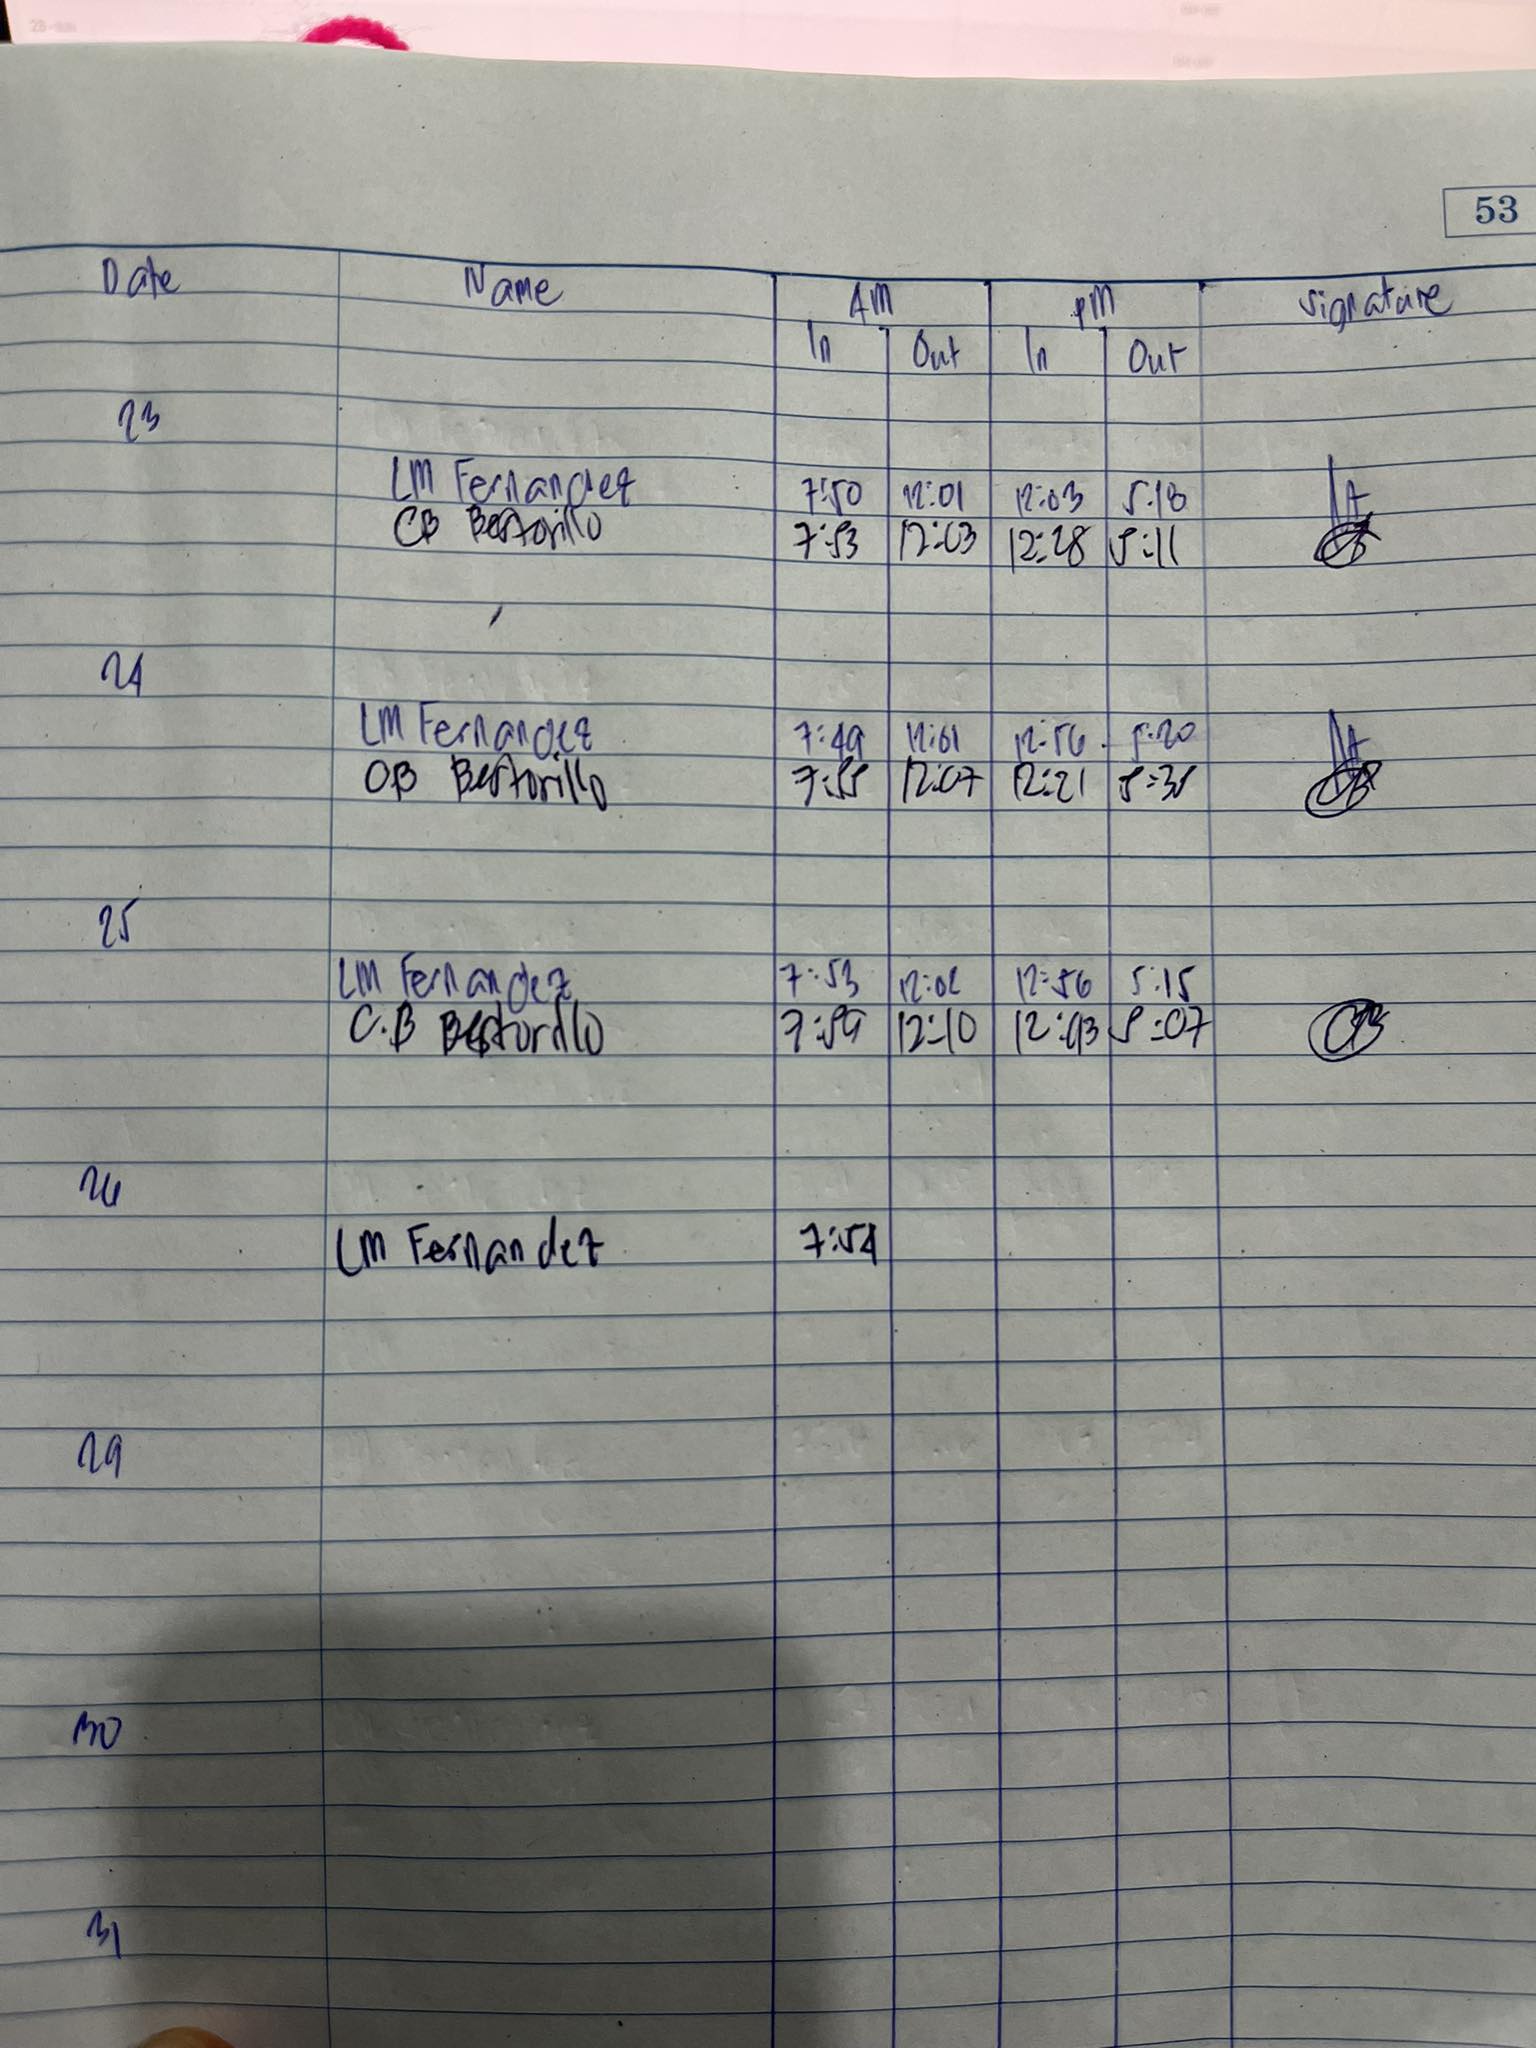 53
Date Name AM PM Signature
In Out In Out
23
LM Fernandez 7:50 12:01 12:03 5:18
CB Bestorillo 7:53 12:03 12:28 5:11
24
LM Fernandez 7:49 12:01 12:56 5:20
CB Bestorillo 7:55 12:07 12:21 5:35
25
LM Fernandez 7:53 12:02 12:56 5:15
C.B Bestorillo 7:59 12:10 5:07
26
LM Fernandez 7:54
29
30
31